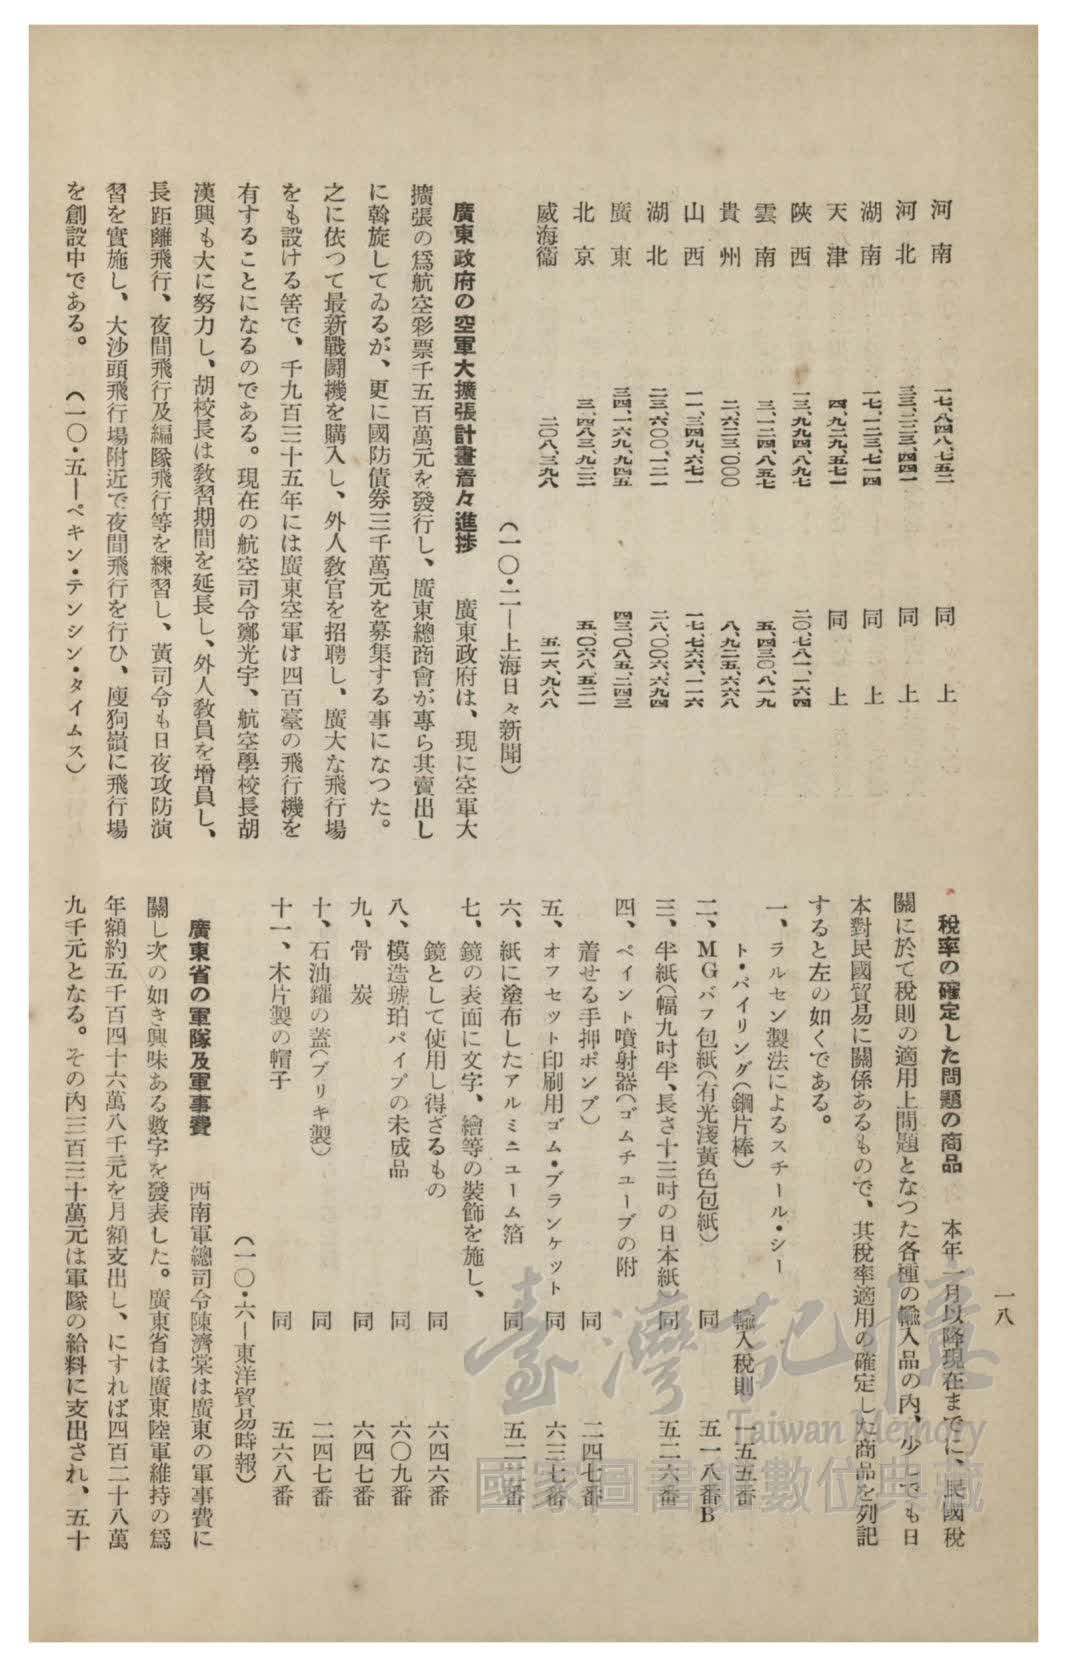 一八
河南　一七、八四八、七五二　同上
河北　三三、二三三、四四一　同上
湖南　一七、一二三、七一四　同上
天津　四、九二九、五七一　同上
陝西　一三、九九四、八九七　二〇、七八一、一六四
雲南　三、一二四、八五七　五、四三〇、八一九
貴州　二、六二三、〇〇〇　八、九二五、六六八
山西　一一、三四九、六七一　一七、七六六、一一六
湖北　二三、六〇〇、一二一　二八、〇〇六、六九四
廣東　三四、一六九、九四五　四三、〇八五、二四三
北京　三、四八三、九二二　五、〇六八、五二一
威海衞　二〇八、三九八　五一六、九八八
（一〇・二―上海日々新聞）
廣東政府の空軍大擴張計畫着々進捗　廣東政府は、現に空軍大
擴張の爲航空彩票千五百萬元を發行し、廣東總商會が專ら其賣出し
に斡旋してゐるが、更に國防債券三千萬元を募集する事になつた。
之に依つて最新戰鬪機を購入し、外人教官を招聘し、廣大な飛行場
をも設ける筈で、千九百三十五年には廣東空軍は四百臺の飛行機を
有することになるのである。現在の航空司令鄭光宇、航空學校長胡
漢興も大に努力し、胡校長は教習期間を延長し、外人教員を增員し、
長距離飛行、夜間飛行及編隊飛行等を練習し、黃司令も日夜攻防演
習を實施し、大沙頭飛行場附近で夜間飛行を行ひ、廋狗嶺に飛行場
を創設中である。　（一〇・五―ペキン・テンシン・タイムス）
稅率の確定した問題の商品　本年一月以降現在までに、民國稅
關に於て稅則の適用上問題となつた各種の輸入品の內、少しでも日
本對民國貿易に關係あるもので、其稅率適用の確定した商品を列記
すると左の如くである。
一、ラルセン製法によるスチール・シー
ト・パイリング（鋼片棒）　輸入稅則　一五五番
二、MGバフ包紙（有光淺黃色包紙）　同　五一八番B
三、半紙（幅九吋半、長さ十三吋の日本紙）　同　五二六番
四、ペイント噴射器（ゴムチユーブの附
着せる手押ポンプ）　同　二四七番
五、オフセツト印刷用ゴム・ブランケツト　同　六三七番
六、紙に塗布したアルミニユーム箔　同　五二一番
七、鏡の表面に文字、繪等の裝飾を施し、
鏡として使用し得ざるもの　同　六四六番
八、模造琥珀パイプの未成品　同　六〇九番
九、骨炭　同　六四七番
十、石油鑵の蓋（ブリキ製）　同　二四七番
十一、木片製の帽子　同　五六八番
（一〇・六―東洋貿易時報）
廣東省の軍隊及軍事費　西南軍總司令陳濟棠は廣東の軍事費に
關し次の如き興味ある數字を發表した。廣東省は廣東陸軍維持の爲
年額約五千百四十六萬八千元を月額支出し、にすれば四百二十八萬
九千元となる。その內三百三十萬元は軍隊の給料に支出され、五十
臺灣記憶
Taiwan Memory
國家圖書館數位典藏